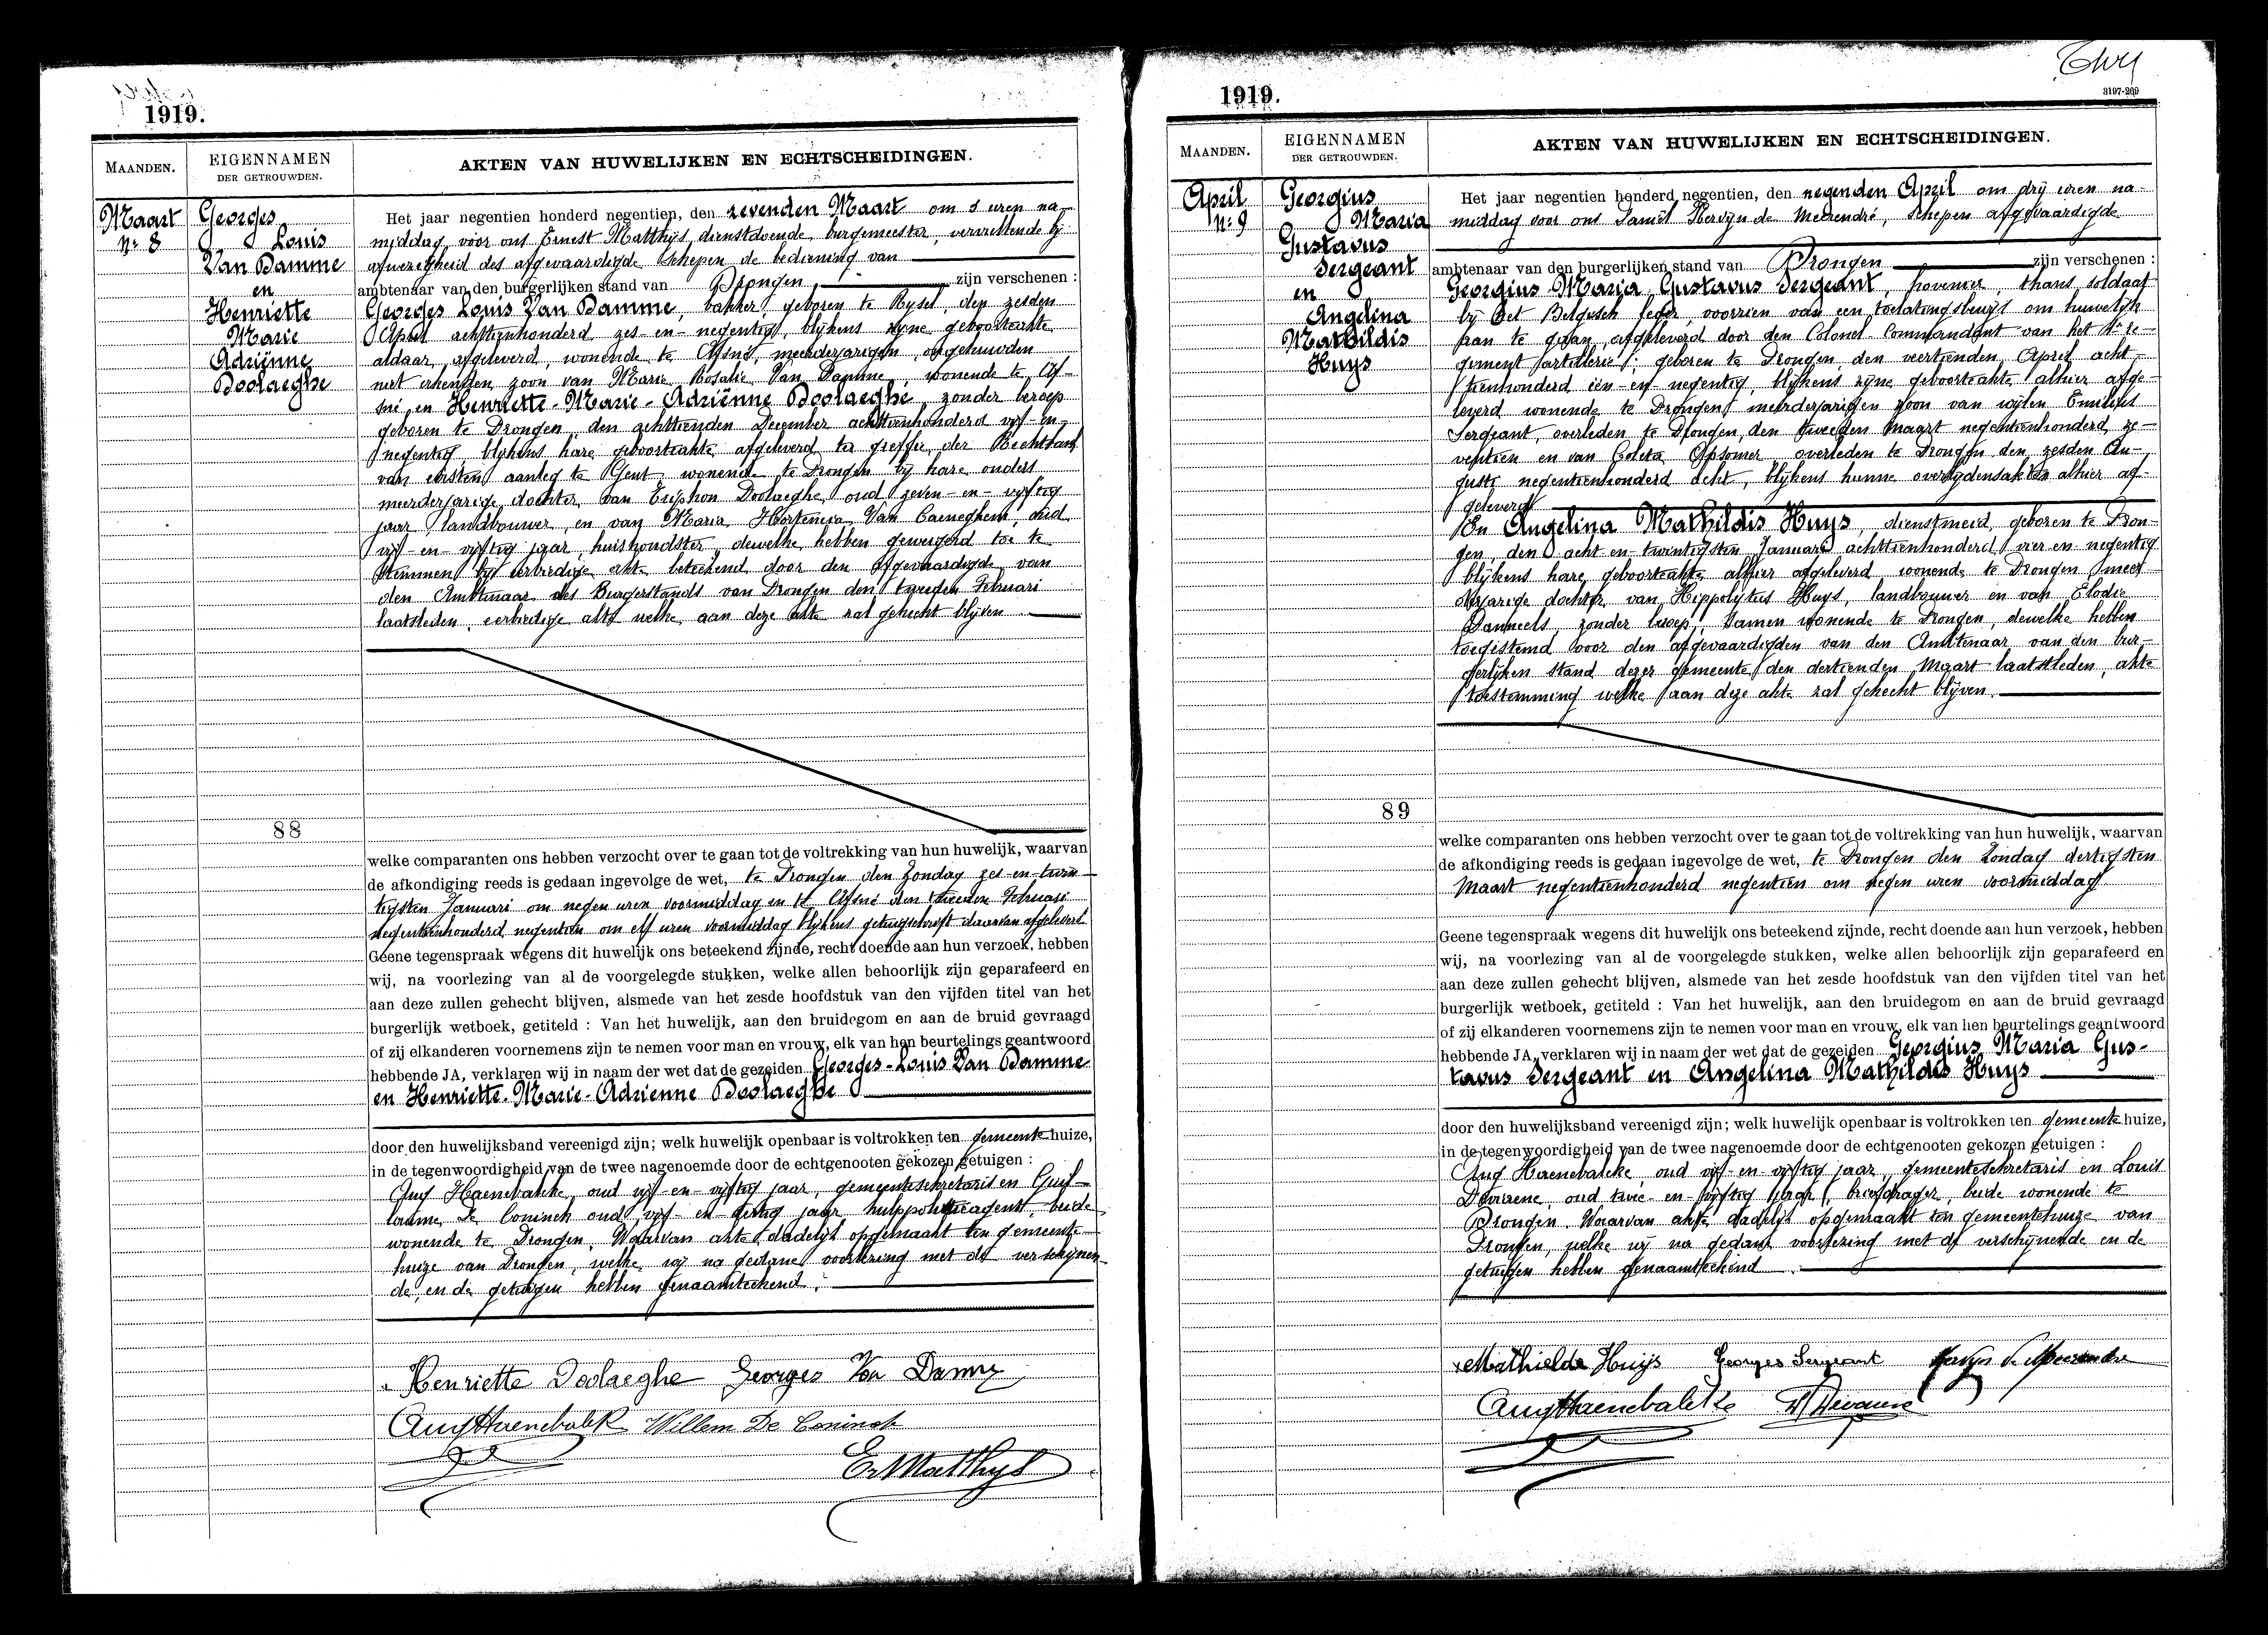 1919.
MAANDEN.
EIGENNAMEN
DER GETROUWDEN.
AKTEN VAN HUWELIJKEN EN ECHTSCHEIDINGEN.
Maart
Nr 8
Georges
Louis
Van Damme
en
Henriette
Marie
Adriënne
Doolaeghe
88
Het jaar negentien honderd negentien, den zevenden Maart om uren na-
middag voor ons Ernest Matthijs, dienstdoende burgemeester, vervullende bij
afwezigheid des afgevaardigde Schepen de bediening van
ambtenaar van den burgerlijken stand van Drongen zijn verschenen :
Georges Louis Van Damme, bakker, geboren te Rysel, den zesden
April achttienhonderd zes-en-negentig, blijkens zyne geboorteakte
aldaar afgeleverd, wonende te Afsné, meerderjarigen ongehuwden
niet erkenden zoon van Marie Rosalie Van Damme, wonende te Af-
sné, en Henriette-Marie-Adriënne Doolaeghe, zonder beroep
geboren te Drongen, den achttienden December achttienhonderd vyf-en-
negentig, blijkens hare geboorteakte afgeleverd ter greffie der Rechtbank
van eersten aanleg te Gent, wonende te Drongen by hare ouders
meerderjarige dochter van Triphon Doolaeghe, oud zeven-en-vyftig
jaar, landbouwer, en van Maria Hortensia Van Caeneghem, oud
vijf-en-vijftig jaar, huishoudster, dewelke hebben geweigerd toe te
stemmen by eerbiedige akte beteekend door den afgevaardigde van
den Ambtenaar des Burgerstands van Drongen den tweeden Februari
laatstleden, eerbiedige akte welke aan deze akte zal gehecht blijven
welke comparanten ons hebben verzocht over te gaan tot de voltrekking van hun huwelijk, waarvan
de afkondiging reeds is gedaan ingevolge de wet, te Drongen den Zondag zes-en-twin-
tigsten Januari om negen uren voormiddag en te Afsné den tweeden Februari
negentienhonderd negentien om elf uren voormiddag blijkens getuigschrift daarvan afgeleverd
Geene tegenspraak wegens dit huwelijk ons beteekend zijnde, recht doende aan hun verzoek, hebben
wij, na voorlezing van al de voorgelegde stukken, welke allen behoorlijk zijn geparafeerd en
aan deze zullen gehecht blijven, alsmede van het zesde hoofdstuk van den vijfden titel van het
burgerlijk wetboek, getiteld : Van het huwelijk, aan den bruidegom en aan de bruid gevraagd
of zij elkanderen voornemens zijn te nemen voor man en vrouw, elk van hen beurtelings geantwoord
hebbende JA, verklaren wij in naam der wet dat de gezeiden Georges-Louis Van Damme
en Henriette-Marie-Adrienne Doolaeghe
door den huwelijksband vereenigd zijn; welk huwelijk openbaar is voltrokken ten gemeente huize,
in de tegenwoordigheid van de twee nagenoemde door de echtgenooten gekozen getuigen :
Aug Haenebalcke, oud vijf-en-vijftig jaar, gemeentesekretaris en Guil-
laume De Coninck oud vijf-en-dertig jaar hulppolitieagent, beide
wonende te Drongen. Waarvan akte dadelijk opgemaakt ten gemeente-
huize van Drongen, welke wij na gedane voorlezing met de verschijnen-
de, en de getuigen hebben genaamteekend.
Henriette Doolaeghe Georges Van Damme
Aug Haenebalck Willem De Coninck
Er Matthys
1919.
3197-269
MAANDEN.
EIGENNAMEN
DER GETROUWDEN.
AKTEN VAN HUWELIJKEN EN ECHTSCHEIDINGEN.
April
Nr 9
Georgius
Maria
Gustavus
Sergeant
en
Angelina
Mathildis
Huys
89
Het jaar negentien honderd negentien, den negenden April om drij uren na-
middag voor ons Daniël Hervyn de Meerendré, Schepen afgevaardigde
ambtenaar van den burgerlijken stand van Drongen zijn verschenen :
Georgius Maria Gustavus Sergeant, hovenier, thans soldaat
bij het Belgisch leger, voorzien van een toelatingsbewijs om huwelijk
aan te gaan, afgeleverd door den Colonel Commandant van het re-
giment artillerie; geboren te Drongen, den veertienden April acht-
tienhonderd één-en-negentig, blijkens zijne geboorteakte alhier afge-
leverd wonende te Drongen, meerderjarigen zoon van wijlen Emilius
Sergeant, overleden te Drongen, den tweeden Maart negentienhonderd ze-
ventien en van Coleta Opsomer, overleden te Drongen den zesden Au-
gusti negentienhonderd acht, blijkens hunne overlydensakten alhier af-
geleverd
En Angelina Mathildis Huys, dienstmeid, geboren te Dron-
gen, den acht-en-twintigsten Januari achttienhonderd vier en negentig
blijkens hare geboorteakte alhier afgeleverd wonende te Drongen meer-
derjarige dochter van Hippolytus Huys, landbouwer en van Elodie
Danneels, zonder beroep, samen wonende te Drongen, dewelke hebben
toegestemd voor den afgevaardigden van den Ambtenaar van den bur-
gerlijken stand dezer gemeente den dertienden Maart laatstleden, akte
toestemming welke aan deze akte zal gehecht blijven.
welke comparanten ons hebben verzocht over te gaan tot de voltrekking van hun huwelijk, waarvan
de afkondiging reeds is gedaan ingevolge de wet, te Drongen den Zondag dertigsten
Maart negentienhonderd negentien om negen uren voormiddag.
Geene tegenspraak wegens dit huwelijk ons beteekend zijnde, recht doende aan hun verzoek, hebben
wij, na voorlezing van al de voorgelegde stukken, welke allen behoorlijk zijn geparafeerd en
aan deze zullen gehecht blijven, alsmede van het zesde hoofdstuk van den vijfden titel van het
burgerlijk wetboek, getiteld : Van het huwelijk, aan den bruidegom en aan de bruid gevraagd
of zij elkanderen voornemens zijn te nemen voor man en vrouw, elk van hen beurtelings geantwoord
hebbende JA, verklaren wij in naam der wet dat de gezeiden Georgius Maria Gus-
tavus Sergeant en Angelina Mathildis Huys
door den huwelijksband vereenigd zijn; welk huwelijk openbaar is voltrokken ten gemeente huize,
in de tegenwoordigheid van de twee nagenoemde door de echtgenooten gekozen getuigen :
Aug Haenebalcke, oud vijf-en-vijftig jaar, gemeentesekretaris en Louis
oud twee-en-vijftig jaar, briefdrager, beide wonende te
Drongen. Waarvan akte dadelijk opgemaakt ten gemeentehuize van
Drongen, welke wij na gedane voorlezing met de verschijnende en de
getuigen hebben genaamteekend.
Mathielde Huijs Georges Sergeant Hervyn de Meerendre
Aug Haenebalcke